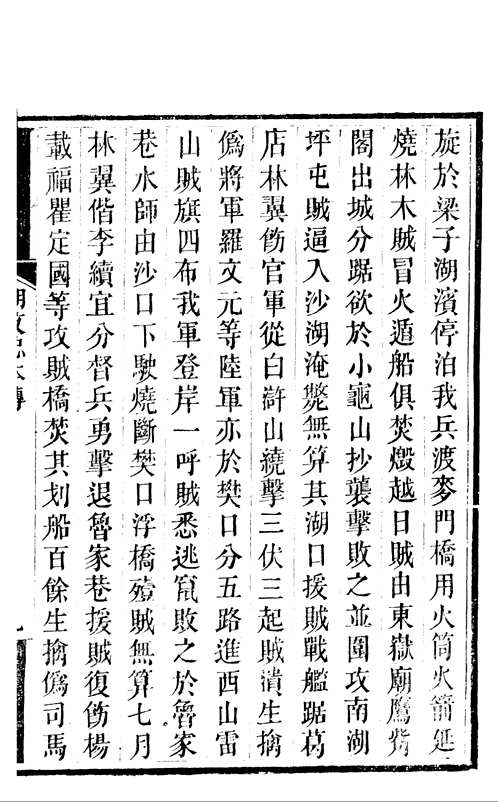 旋於梁子湖濱停泊我兵渡麥門橋用火筒火箭延
燒林木賊冒火遁船俱焚燬越日賊由東嶽廟鷹觜
閣出城分踞欲於小龜山抄襲擊敗之並圍攻南湖
坪屯賊逼入沙湖淹斃無算其湖口援賊戰艦踞葛
店林翼飭官軍從白滸山繞擊三伏三起賊潰生擒
僞將軍羅文元等陸軍亦於樊口分五路進西山雷
山賊旗四布我軍登岸一呼賊悉逃竄敗之於魯家
巷水師由沙口下駛燒斷樊口浮橋殪賊無算七月
林翼偕李續宜分督兵勇擊退魯家巷援賊復飭楊
載福瞿定國等攻賊橋焚其划船百餘生擒僞司馬